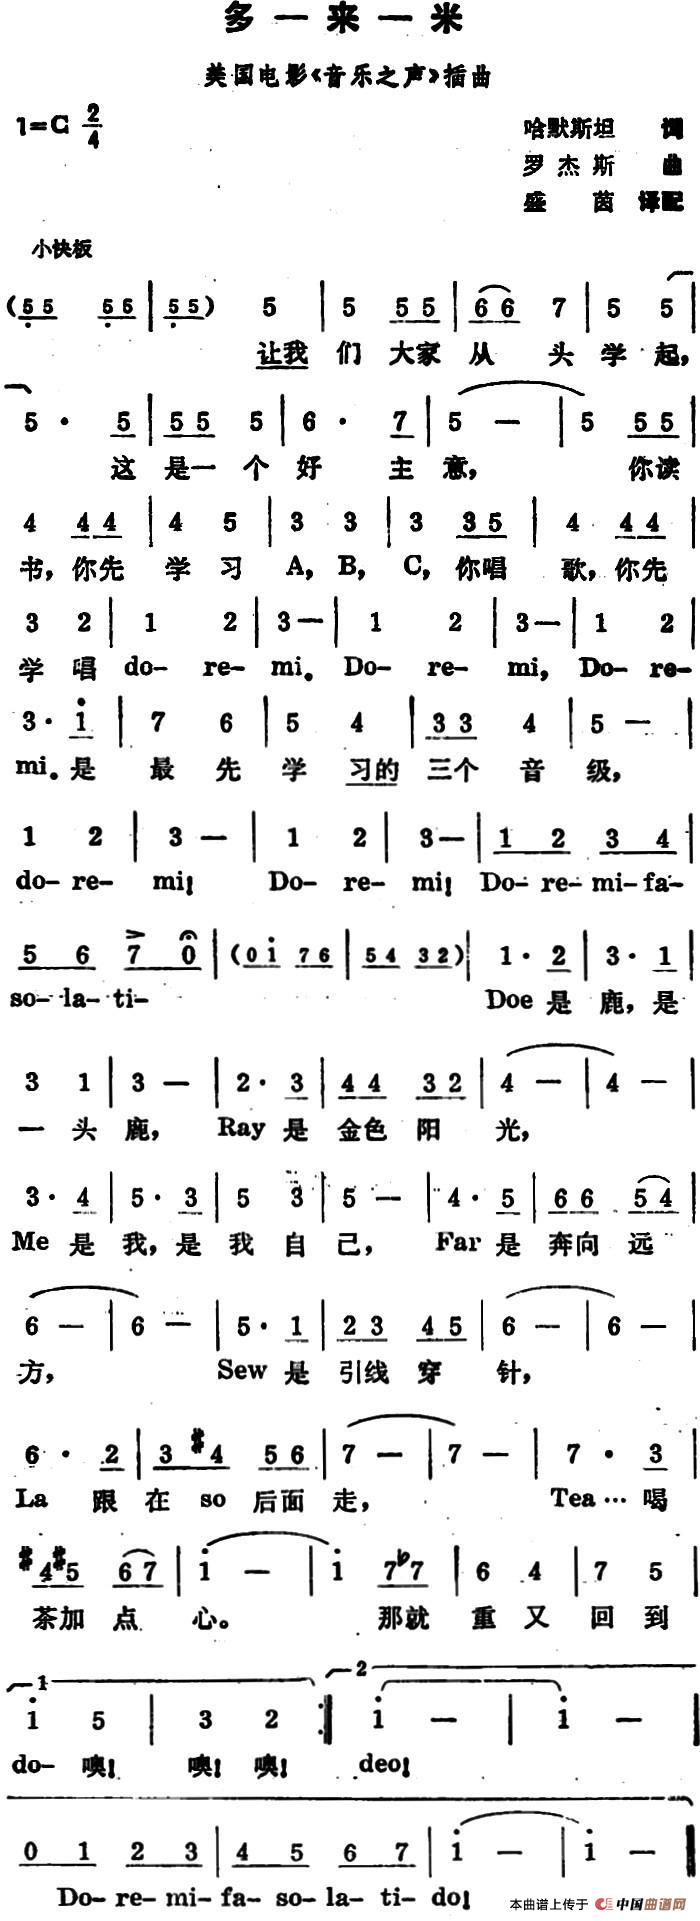 多—来—米
美国电影《音乐之声》插曲
1=C 2/4
哈默斯坦 词
罗杰斯 曲
盛茵 译配
小快板
(5 5 5 5 | 5 5) 5 | 5 5 5 | 6 6 7 | 5 5 |
让我 们 大家 从 头 学 起,
5 · 5 | 5 5 5 | 6 · 7 | 5 — | 5 5 5 |
这 是一 个 好 主 意, 你读
4 4 4 | 4 5 | 3 3 | 3 3 5 | 4 4 4 |
书, 你先 学 习 A, B, C, 你唱 歌, 你先
3 2 | 1 2 | 3 — | 1 2 | 3 — | 1 2 |
学 唱 do- re- mi。 Do- re- mi, Do- re-
3 · i | 7 6 | 5 4 | 3 3 4 | 5 — |
mi。是 最 先 学 习的 三个 音 级,
1 2 | 3 — | 1 2 | 3 — | 1 2 3 4 |
do- re- mi! Do- re- mi! Do- re- mi- fa-
5 6 7 0 | (0 i 7 6 | 5 4 3 2) | 1 · 2 | 3 · 1 |
so- la- ti- Doe 是 鹿, 是
3 1 | 3 — | 2 · 3 | 4 4 3 2 | 4 — | 4 — |
一 头 鹿, Ray 是 金色 阳 光,
3 · 4 | 5 · 3 | 5 3 | 5 — | 4 · 5 | 6 6 5 4 |
Me 是 我, 是 我 自 己, Far 是 奔向 远
6 — | 6 — | 5 · 1 | 2 3 4 5 | 6 — | 6 — |
方, Sew 是 引线 穿 针,
6 · 2 | 3 #4 5 6 | 7 — | 7 — | 7 · 3 |
La 跟 在 so 后面 走, Tea…喝
#4 #5 6 7 | i — | i 7 b7 | 6 4 | 7 5 |
茶加 点 心。 那就 重 又 回 到
1 2
i 5 | 3 2 :| i — | i — |
do- 噢! 噢! 噢! deo!
0 1 2 3 | 4 5 6 7 | i — | i — ||
Do- re- mi- fa- so- la- ti- do!
本曲谱上传于 中国曲谱网